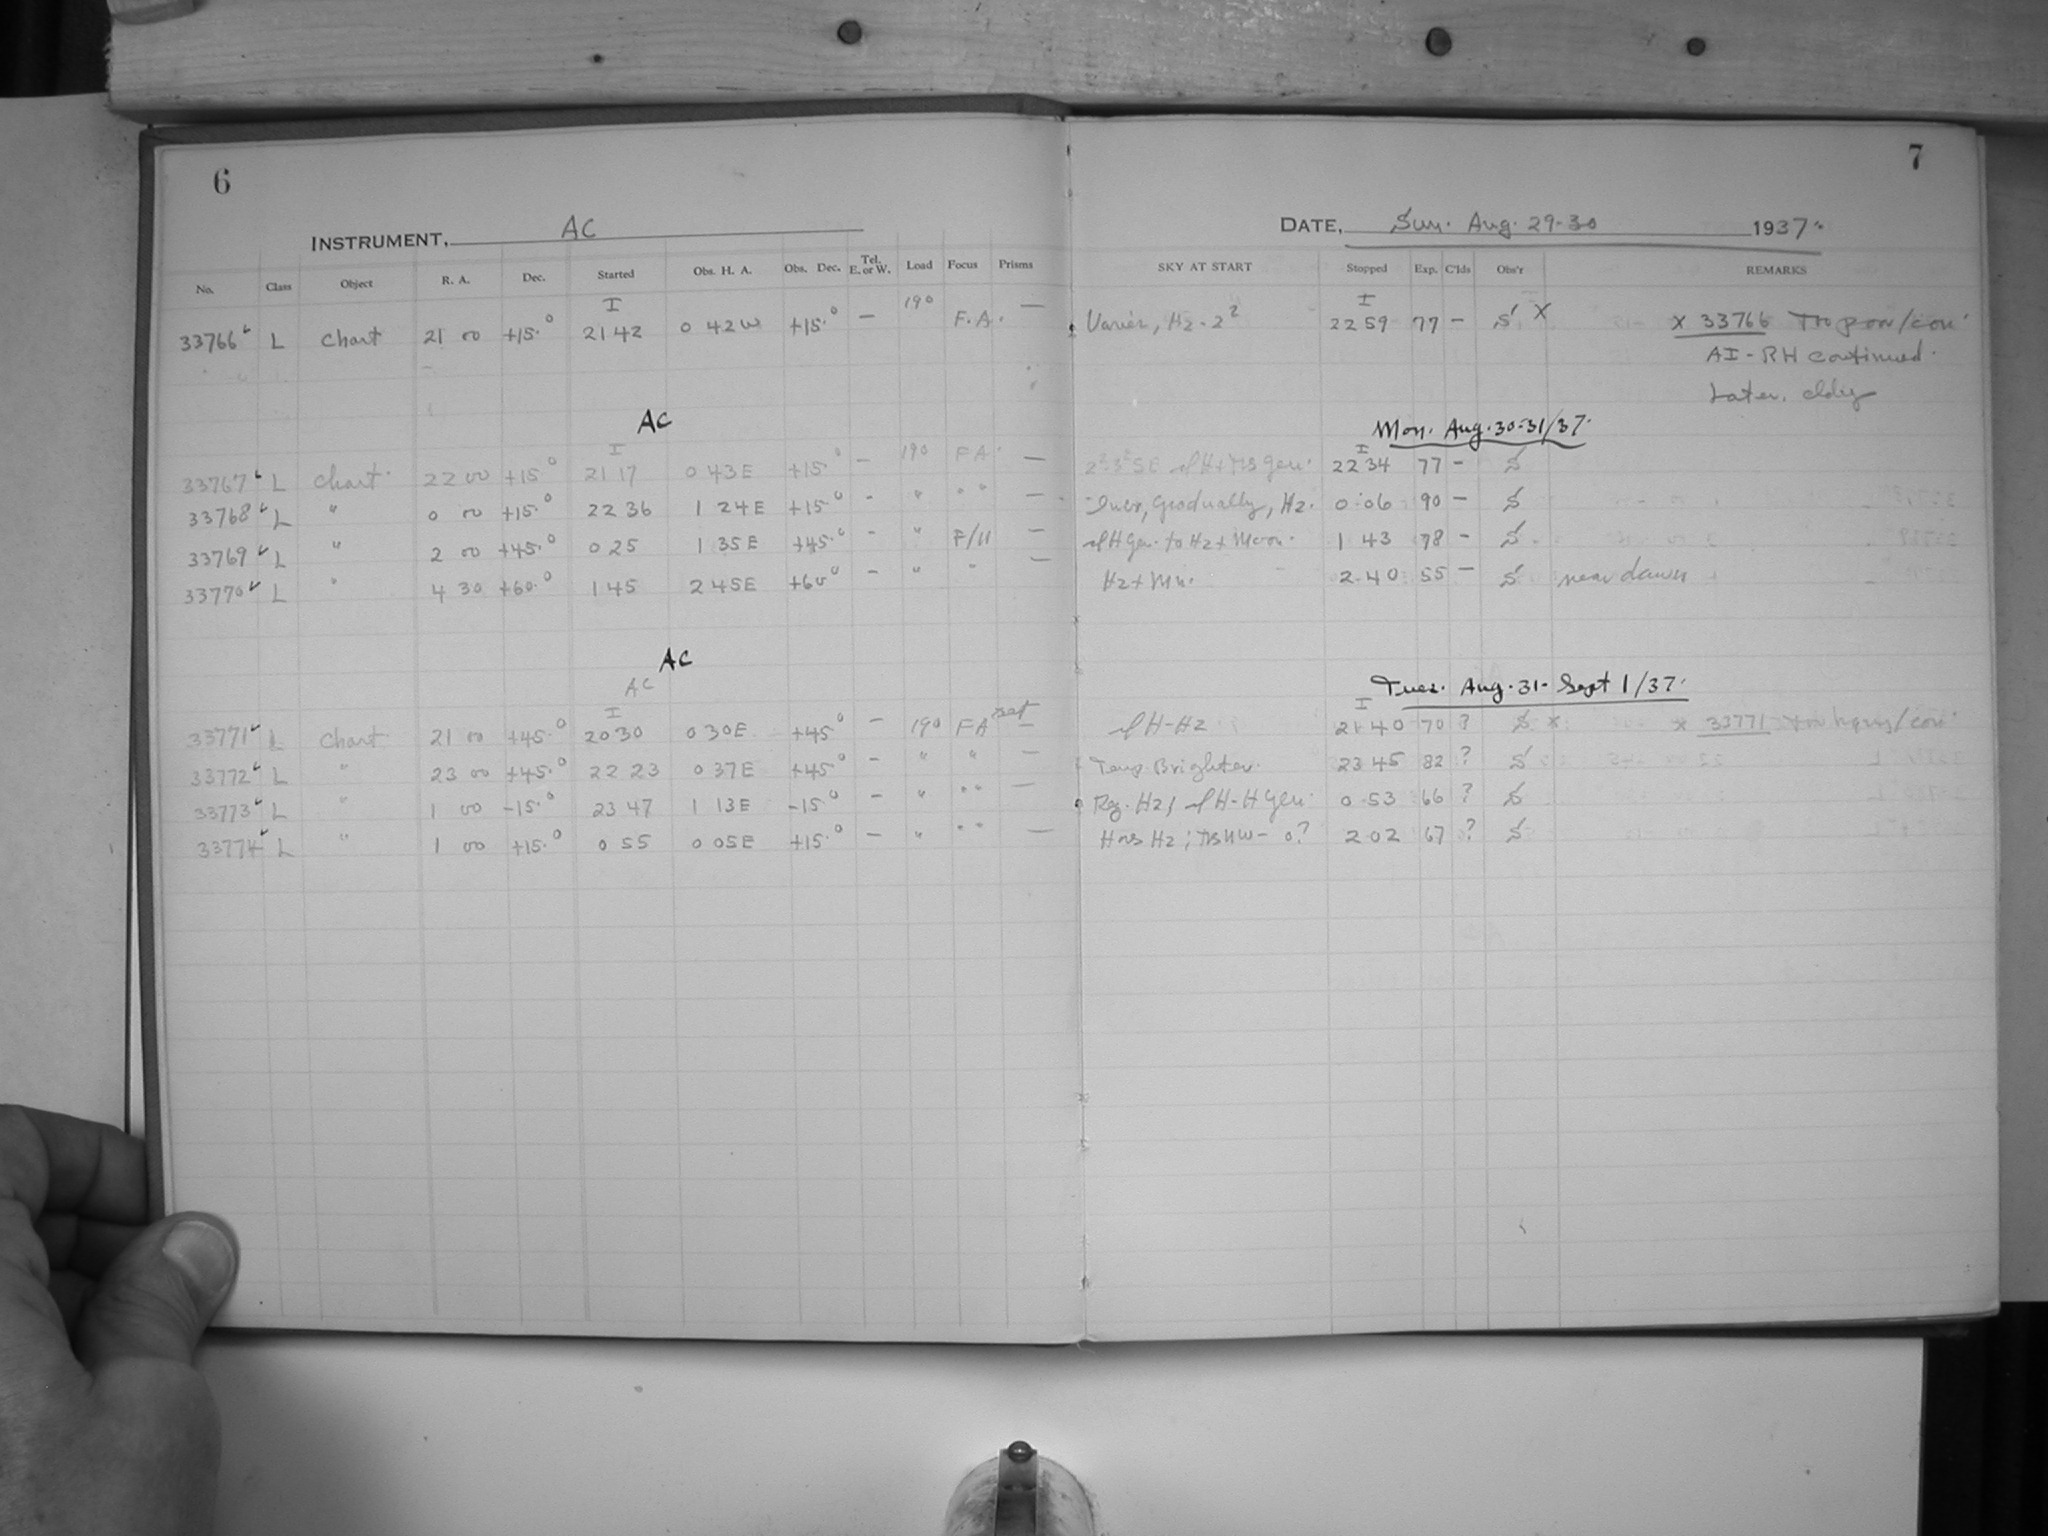 6
INSTRUMENT, AC
No. Class Object R. A. Dec. Started Obs. H. A. Obs. Dec. Tel. E. or W. Load Focus Prisms
I
33766 L Chart 21 00 +15.° 21 42 0 42 W +15.° — 190 F.A. —
AC
I
33767 L Chart 22 00 +15.° 21 17 0 43 E +15.° — 190 FA. —
33768 L " 0 00 +15.° 22 36 1 24 E +15° - " " " —
33769 L " 2 00 +45.° 0 25 1 35 E +45.° - " F/11 —
33770 L " 4 30 +60.° 1 45 2 45 E +60° - " " —
AC
AC
I
33771 L Chart 21 00 +45.° 20 30 0 30 E +45° — 190 FA —
33772 L " 23 00 +45.° 22 23 0 37 E +45° - " " —
33773 L " 1 00 -15.° 23 47 1 13 E -15° - " " " —
33774 L " 1 00 +15.° 0 55 0 05 E +15.° — " " " —
7
DATE, Sun. Aug. 29-30 1937
SKY AT START Stopped Exp. C'lds Obs'r REMARKS
I
Varies, Hz - 2² 22 59 77 - S X X 33766 con
AI - RH continued.
Later. cldy
Mon. Aug. 30-31/37.
I
SE 22 34 77 - S
Gradually, Hz. 0 06 90 - S
to Hz + Moon. 1 43 78 - S
Hz + Mn. 2 40 55 - S near dawn
Tues. Aug. 31- Sept 1/37.
I
H-Hz 21 40 70 ? S X X 33771
Temp. Brighter. 23 45 82 ? S
Hz, 0 53 66 ? S
Hz; NW - 0? 2 02 67 ? S